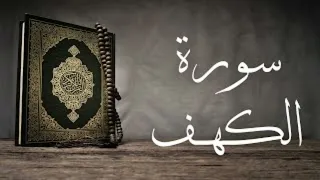 سورة
الكهف